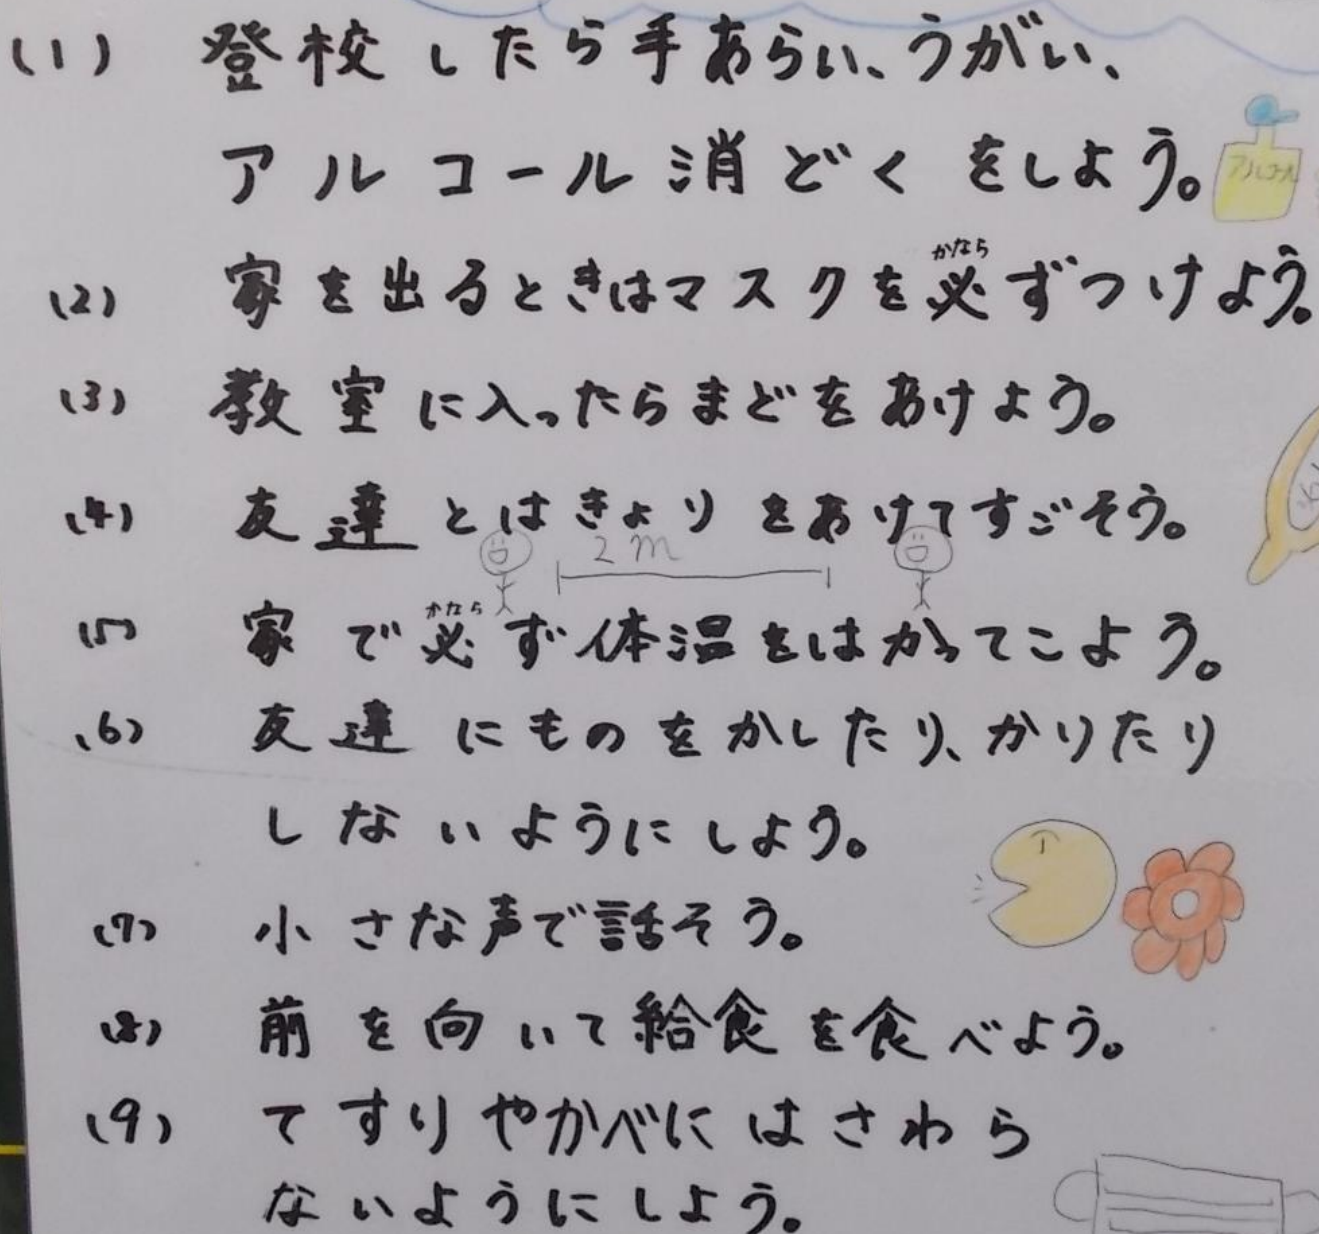 (1) 登校したら手あらい、うがい、
アルコール消どくをしよう。
アルコール
かなら
(2) 家を出るときはマスクを必ずつけよう。
(3) 教室に入ったらまどをあけよう。
(4) 友達とはきょりをあけてすごそう。
2m
かなら
(5) 家で必ず体温をはかってこよう。
(6) 友達にものをかしたり、かりたり
しないようにしよう。
(7) 小さな声で話そう。
(8) 前を向いて給食を食べよう。
(9) てすりやかべにはさわら
ないようにしよう。